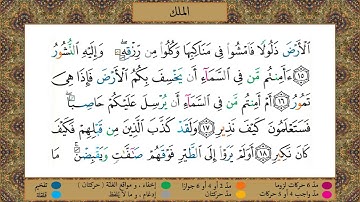 الملك
ٱلْأَرْضَ ذَلُولًا فَٱمْشُوا۟ فِى مَنَاكِبِهَا وَكُلُوا۟ مِن رِّزْقِهِۦ ۖ وَإِلَيْهِ ٱلنُّشُورُ
١٥ ءَأَمِنتُم مَّن فِى ٱلسَّمَآءِ أَن يَخْسِفَ بِكُمُ ٱلْأَرْضَ فَإِذَا هِىَ
تَمُورُ ١٦ أَمْ أَمِنتُم مَّن فِى ٱلسَّمَآءِ أَن يُرْسِلَ عَلَيْكُمْ حَاصِبًا ۖ
فَسَتَعْلَمُونَ كَيْفَ نَذِيرِ ١٧ وَلَقَدْ كَذَّبَ ٱلَّذِينَ مِن قَبْلِهِمْ فَكَيْفَ
كَانَ نَكِيرِ ١٨ أَوَلَمْ يَرَوْا۟ إِلَى ٱلطَّيْرِ فَوْقَهُمْ صَٰٓفَّٰتٍ وَيَقْبِضْنَ ۚ مَا
مد ٦ حركات لزوما مد ٢ أو ٤ أو ٦ جوازا إخفاء، ومواقع الغنة (حركتان) تفخيم
مد واجب ٤ أو ٥ حركات مد حركتان إدغام، وما لا يلفظ قلقلة